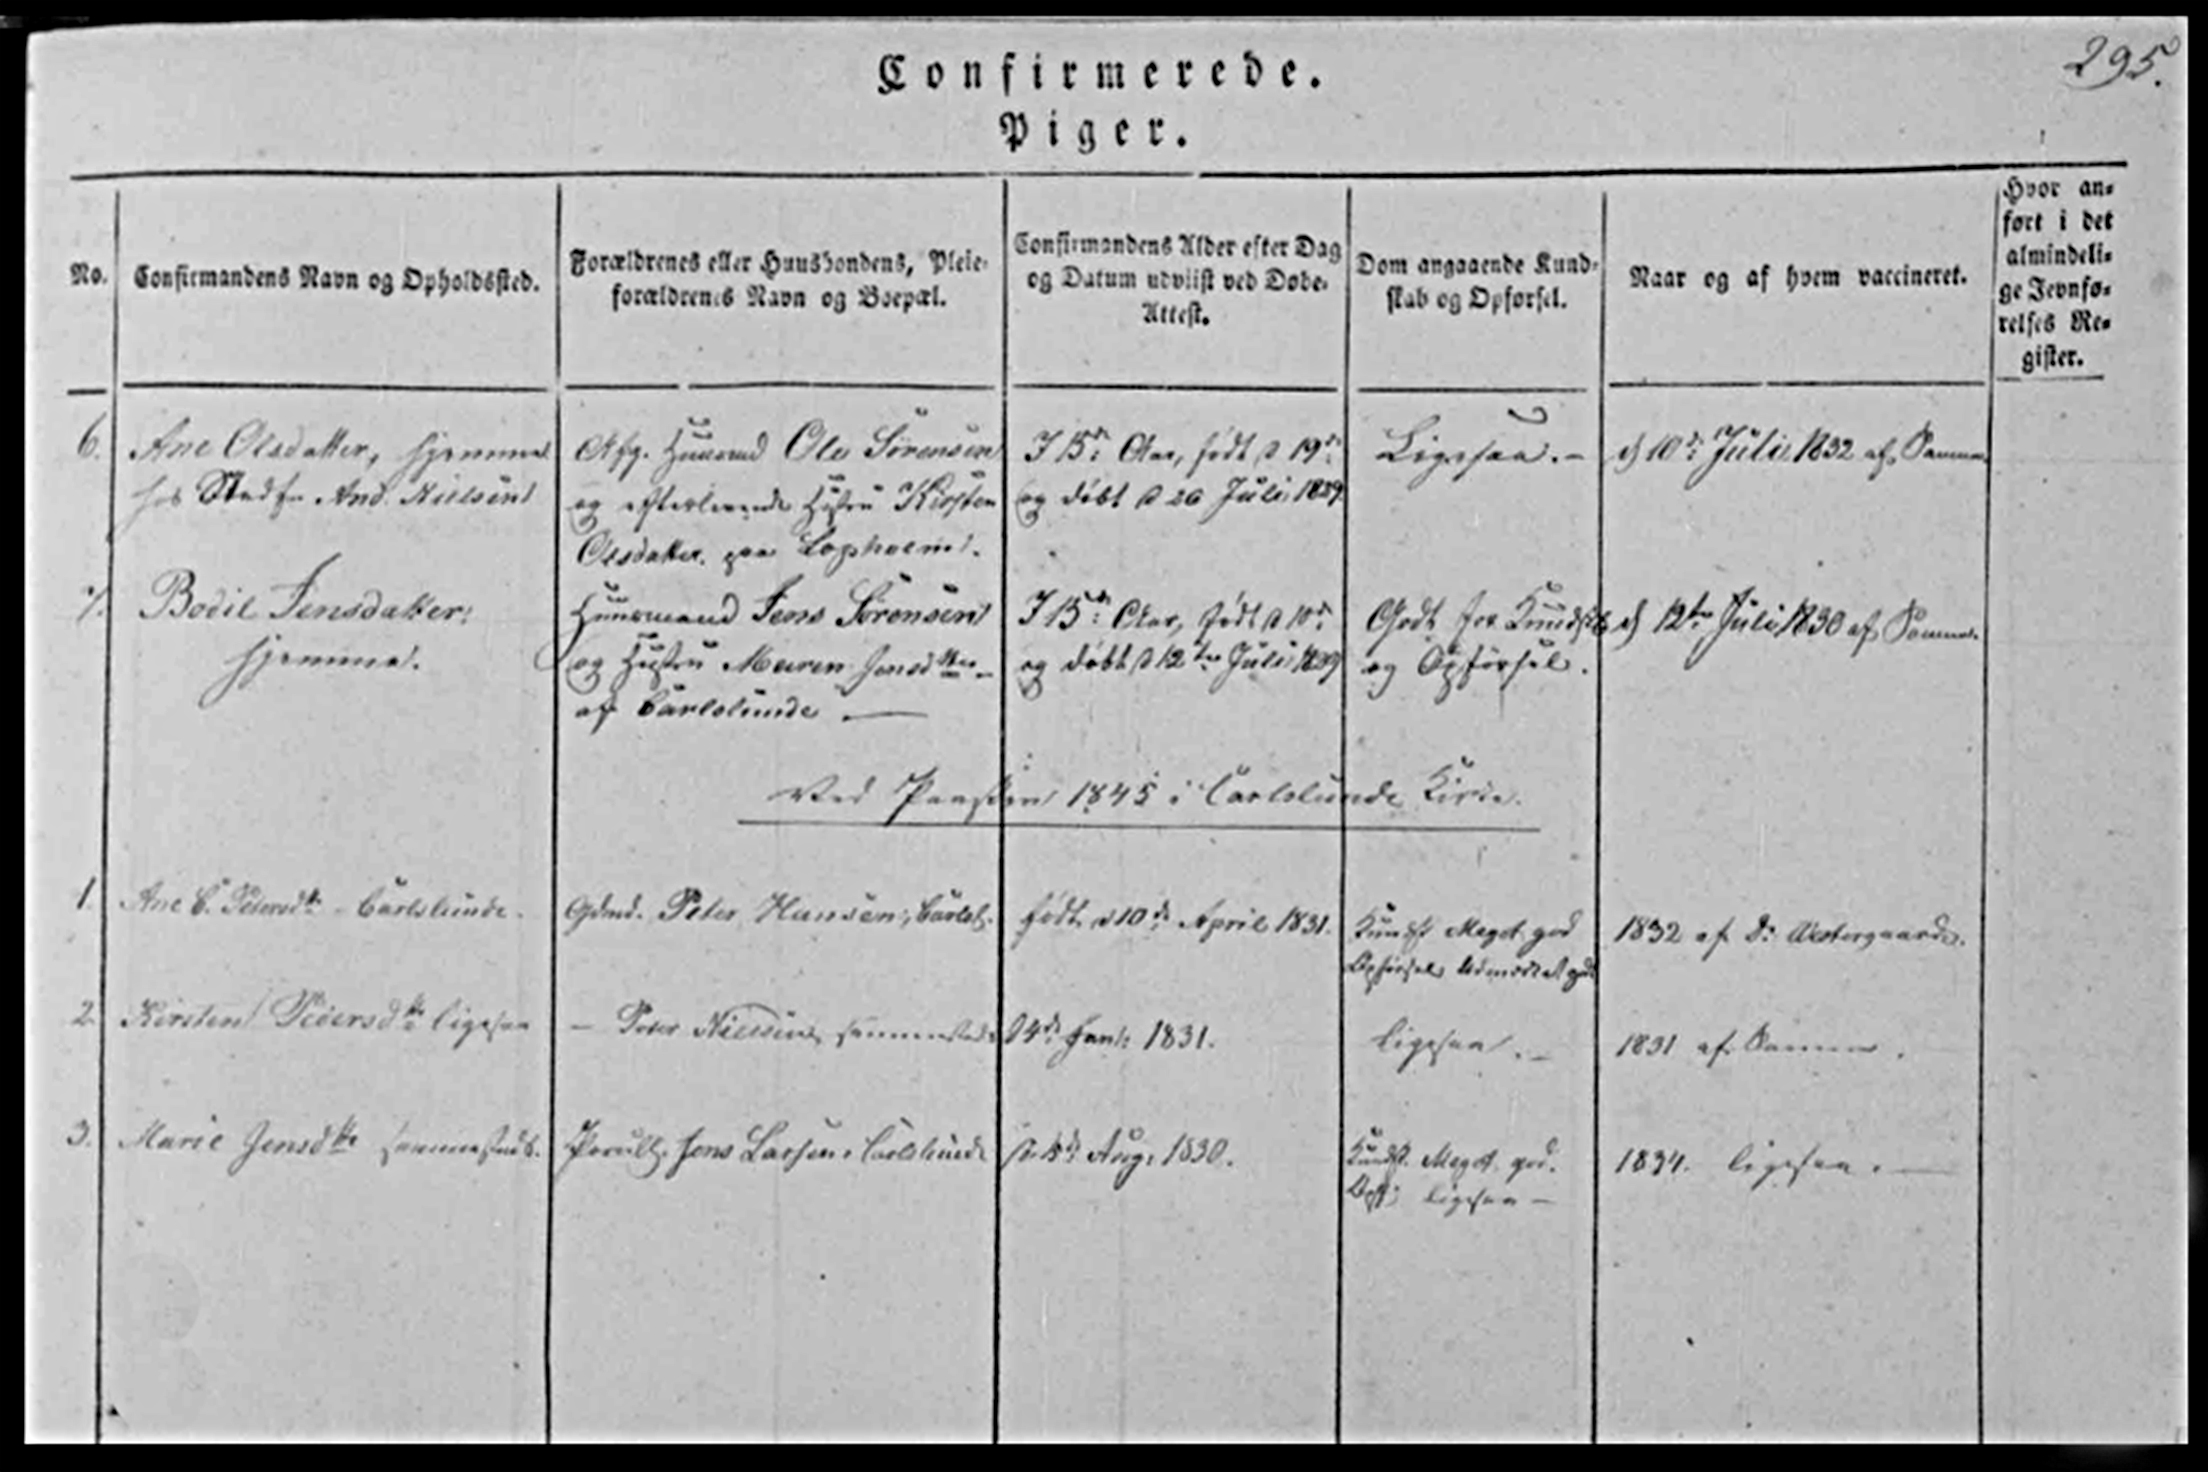 295.
Confirmerede.
Piger.
No.
Confirmandens Navn og Opholdssted.
Forældrenes eller Huusbondens, Pleie-
forældrenes Navn og Boepæl.
Confirmandens Alder efter Dag
og Datum udviist ved Døbe-
Attest.
Dom angaaende Kund-
skab og Opførsel.
Naar og af hvem vaccineret.
Hvor an-
ført i det
almindeli-
ge Jevnfø-
relses Re-
gister.
6. Ane Olsdatter, hjemme
hos And. Nielsen
Afg. Huusmd Ole Sørensen
og efterlevende Hustru Kirsten
Olsdatter paa Lopholm.
I 15de Aar, født d 19de
og døbt d 26 Juli 1829
Ligesaa. -
d 10de Juli 1832 af Samme
7. Bodil Jensdatter
hjemme.
Huusmand Jens Sørensen
og Hustru Maren Jensdtter -
af Carlslunde. —
I 15de Aar, født d 10de
og døbt d 12te Juli 1829
Godt for Kundsk.
og Opførsel.
d 12te Juli 1830 af Samme.
Ved Paasken 1845 i Carlslunde Kirke.
1. Ane C. Petersdtr - Carlslunde.
Gdmd. Peter Hansen, Carlsl.
født d 10de April 1831.
Kundsk Meget god
Opførsel Udmærket god
1832 af Dr Westergaard.
2. Kirsten Pedersdtr ligesaa
- Peder Nielsen, sammesteds
4de Jan: 1831.
ligesaa. -
1831 af Samme.
3. Marie Jensdtr sammesteds.
Jens Larsen, Carlslunde
Aug: 1830.
Kundsk. Meget god.
Opf: ligesaa -
1834. ligesaa. —